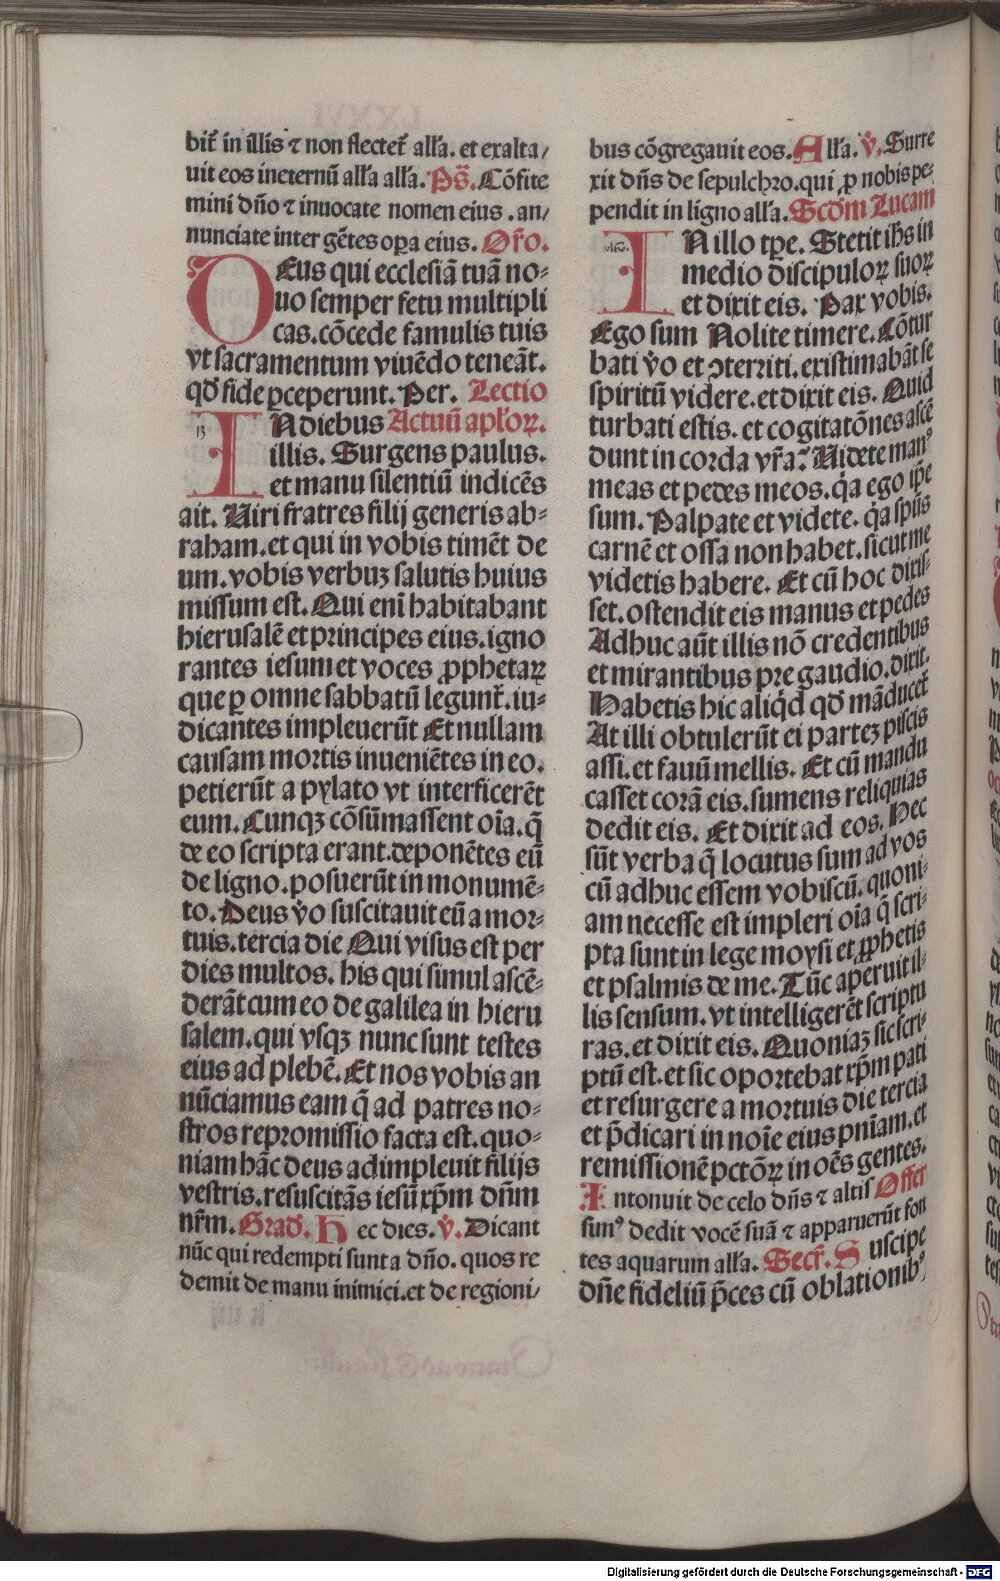 bit᷑ in illis ⁊ non flectet᷑ alła. et exalta/
uit eos ineternū alła alła. Ps̄. Cōfite
mini dn̄o ⁊ inuocate nomen eius . an/
nunciate inter gētes oꝑa eius. Or̄o.
DEus qui ecclesiā tuā no⸗
uo semper fetu multipli
cas. cōcede famulis tuis
vt sacramentum viuēdo teneāt.
qđ fide ꝑceperunt. Per. Lectio
13
IN diebus Actuū apłoꝝ.
illis. Surgens paulus.
et manu silentiū indicēs
ait. Uiri fratres filij generis ab⸗
raham. et qui in vobis timēt de
um. vobis verbuꝫ salutis huius
missum est. Qui eni habitabant
hierusalē et principes eius. igno
rantes iesum et voces ꝓphetaꝝ
que ꝑ omne sabbatū legunt᷑. iu⸗
dicantes impleuerūt Et nullam
causam mortis inueniētes in eo.
petierūt a pylato vt interficerēt
eum. Cunqꝫ cōsūmassent oīa. q̄
de eo scripta erant. deponētes eū
de ligno. posuerūt in monumē⸗
to. Deus v̊o suscitauit eū a mor⸗
tuis. tercia die Qui visus est per
dies multos. his qui simul ascē⸗
derāt cum eo de galilea in hieru
salem. qui vsqꝫ nunc sunt testes
eius ad plebē. Et nos vobis an
nūciamus eam q̄ ad patres no⸗
stros repromissio facta est. quo⸗
niam hāc deus adimpleuit filijs
vestris. resuscitās iesū xp̄m dn̄m
nr̄m. Grad̄. Hec dies. v̊. Dicant
nūc qui redempti sunt a dn̄o. quos re
demit de manu inimici. et de regioni/
bus cōgregauit eos. Alła. v̊. Surre
xit dn̄s de sepulchro. qui ꝓ nobis pe⸗
pendit in ligno alła. Scd̄m Lucam
IN illo tꝑe. Stetit ih̄s in
medio discipuloꝝ suoꝝ
et dixit eis. Pax vobis.
Ego sum Nolite timere. Cōtur
bati v̊o et ꝯterriti. existimabāt se
spiritū videre. et dixit eis. Quid
turbati estis. et cogitatōnes ascē
dunt in corda vr̄a? Uidete manꝰ
meas et pedes meos. q̇a ego ip̄e
sum. Palpate et videte. q̇a sp̄ūs
carnē et ossa non habet. sicut me
videtis habere. Et cū hoc dixis⸗
set. ostendit eis manus et pedes
Adhuc aūt illis nō credentibus
et mirantibus pre gaudio. dixit.
Habetis hic aliq̇d qđ māducet᷑
At illi obtulerūt ei parteꝫ piscis
assi. et fauū mellis. Et cū mandu
casset corā eis. sumens reliquias
dedit eis. Et dixit ad eos. Hec
sūt verba q̄ locutus sum ad vos
cū adhuc essem vobiscū. quoni⸗
am necesse est impleri oīa q̄ scri⸗
pta sunt in lege moysi et ꝓphetis
et psalmis de me. Tūc aperuit il⸗
lis sensum. vt intelligerēt scriptu
ras. et dixit eis. Quoniaꝫ sic scri⸗
ptū est. et sic oportebat xp̄m pati
et resurgere a mortuis die tercia
et p̄dicari in noīe eius pn̄iam. et
remissionē pctōꝝ in oēs gentes.
Intonuit de celo dn̄s ⁊ altis Offer
simꝰ dedit vocē suā ⁊ apparuerūt fon
tes aquarum alła. Secr̄. Suscipe
dn̄e fideliū p̄ces cū oblationibꝰ
Digitalisierung gefördert durch die Deutsche Forschungsgemeinschaft - DFG